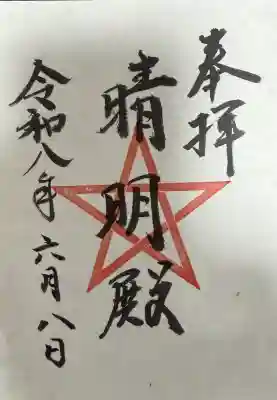 奉拝
晴明殿
令和八年六月八日